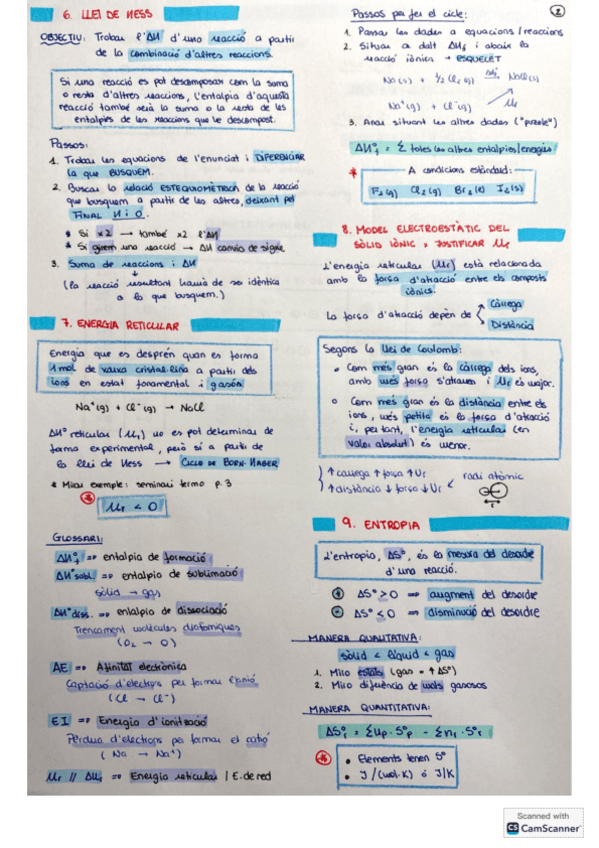 6. LLEI DE HESS
OBJECTIU: Trobar l'ΔH d'una reacció a partir
de la combinació d'altres reaccions.
Si una reacció es pot descomposar com la suma
o resta d'altres reaccions, l'entalpia d'aquesta
reacció també serà la suma o la resta de les
entalpies de les reaccions que le descompost.
Passos:
1. Trobar les equacions de l'enunciat i DIFERENCIAR
la que BUSQUEM.
2. Buscar la relació ESTEQUIOMÈTRICA de la reacció
que busquem a partir de les altres, deixant pel
FINAL H i O.
* Si x2 → també x2 l'ΔH
* Si girem una reacció → ΔH canvia de signe
3. Suma de reaccions i ΔH
↓
(la reacció resultant haurà de ser idèntica
a la que busquem.)
7. ENERGIA RETICULAR
Energia que es desprèn quan es forma
1 mol de xarxa cristal·lina a partir dels
ions en estat fonamental i gasós
Na⁺(g) + Cl⁻(g) → NaCl
ΔH° reticular (Ur) no es pot determinar de
forma experimental, però sí a partir de
la llei de Hess → CICLE DE BORN-HABER
* Mirar exemple: seminari termo p.3
* Ur < 0
GLOSSARI:
ΔH°f => entalpia de formació
ΔH°subl. => entalpia de sublimació
sòlid → gas
ΔH°diss. => entalpia de dissociació
Trencament molècules diatòmiques
(O₂ → O)
AE => Afinitat electrònica
Captació d'electrons per formar l'anió
(Cl → Cl⁻)
EI => Energia d'ionització
Pèrdua d'electrons per formar el catió
(Na → Na⁺)
Ur // ΔUr => Energia reticular / E. de red
2
Passos per fer el cicle:
1. Passar les dades a equacions/reaccions
2. Situar a dalt ΔHf i abaix la
reacció iònica → ESQUELET
Na(s) + 1/2 Cl₂(g) ΔH°f → NaCl(s)
Na⁺(g) + Cl⁻(g) Ur
3. Anar situant les altres dades ("puzzle")
ΔH°f = Σ totes les altres entalpies/energies
* A condicions estàndard:
F₂(g) Cl₂(g) Br₂(l) I₂(s)
8. MODEL ELECTROESTÀTIC DEL
SÒLID IÒNIC x JUSTIFICAR Ur
L'energia reticular (Ur) està relacionada
amb la força d'atracció entre els composts
iònics.
La força d'atracció depèn de
Càrrega
Distància
Segons la llei de Coulomb:
• Com més gran és la càrrega dels ions,
amb més força s'atrauen i Ur és major.
• Com més gran és la distància entre els
ions, més petita és la força d'atracció
i, per tant, l'energia reticular (en
valor absolut) és menor.
↑càrrega ↑força ↑Ur
↑distància ↓força ↓Ur
radi atòmic
r
9. ENTROPIA
L'entropia, ΔS°, és la mesura del desordre
d'una reacció.
+ ΔS° > 0 => augment del desordre
- ΔS° < 0 => disminució del desordre
MANERA QUALITATIVA:
sòlid < líquid < gas
1. Miro estats (gas = ↑ΔS°)
2. Miro diferència de mols gasosos
MANERA QUANTITATIVA:
ΔS°r = Σnp · S°p - Σnr · S°r
* • Elements tenen S°
• J/(mol·K) ó J/K
Scanned with
CS CamScanner